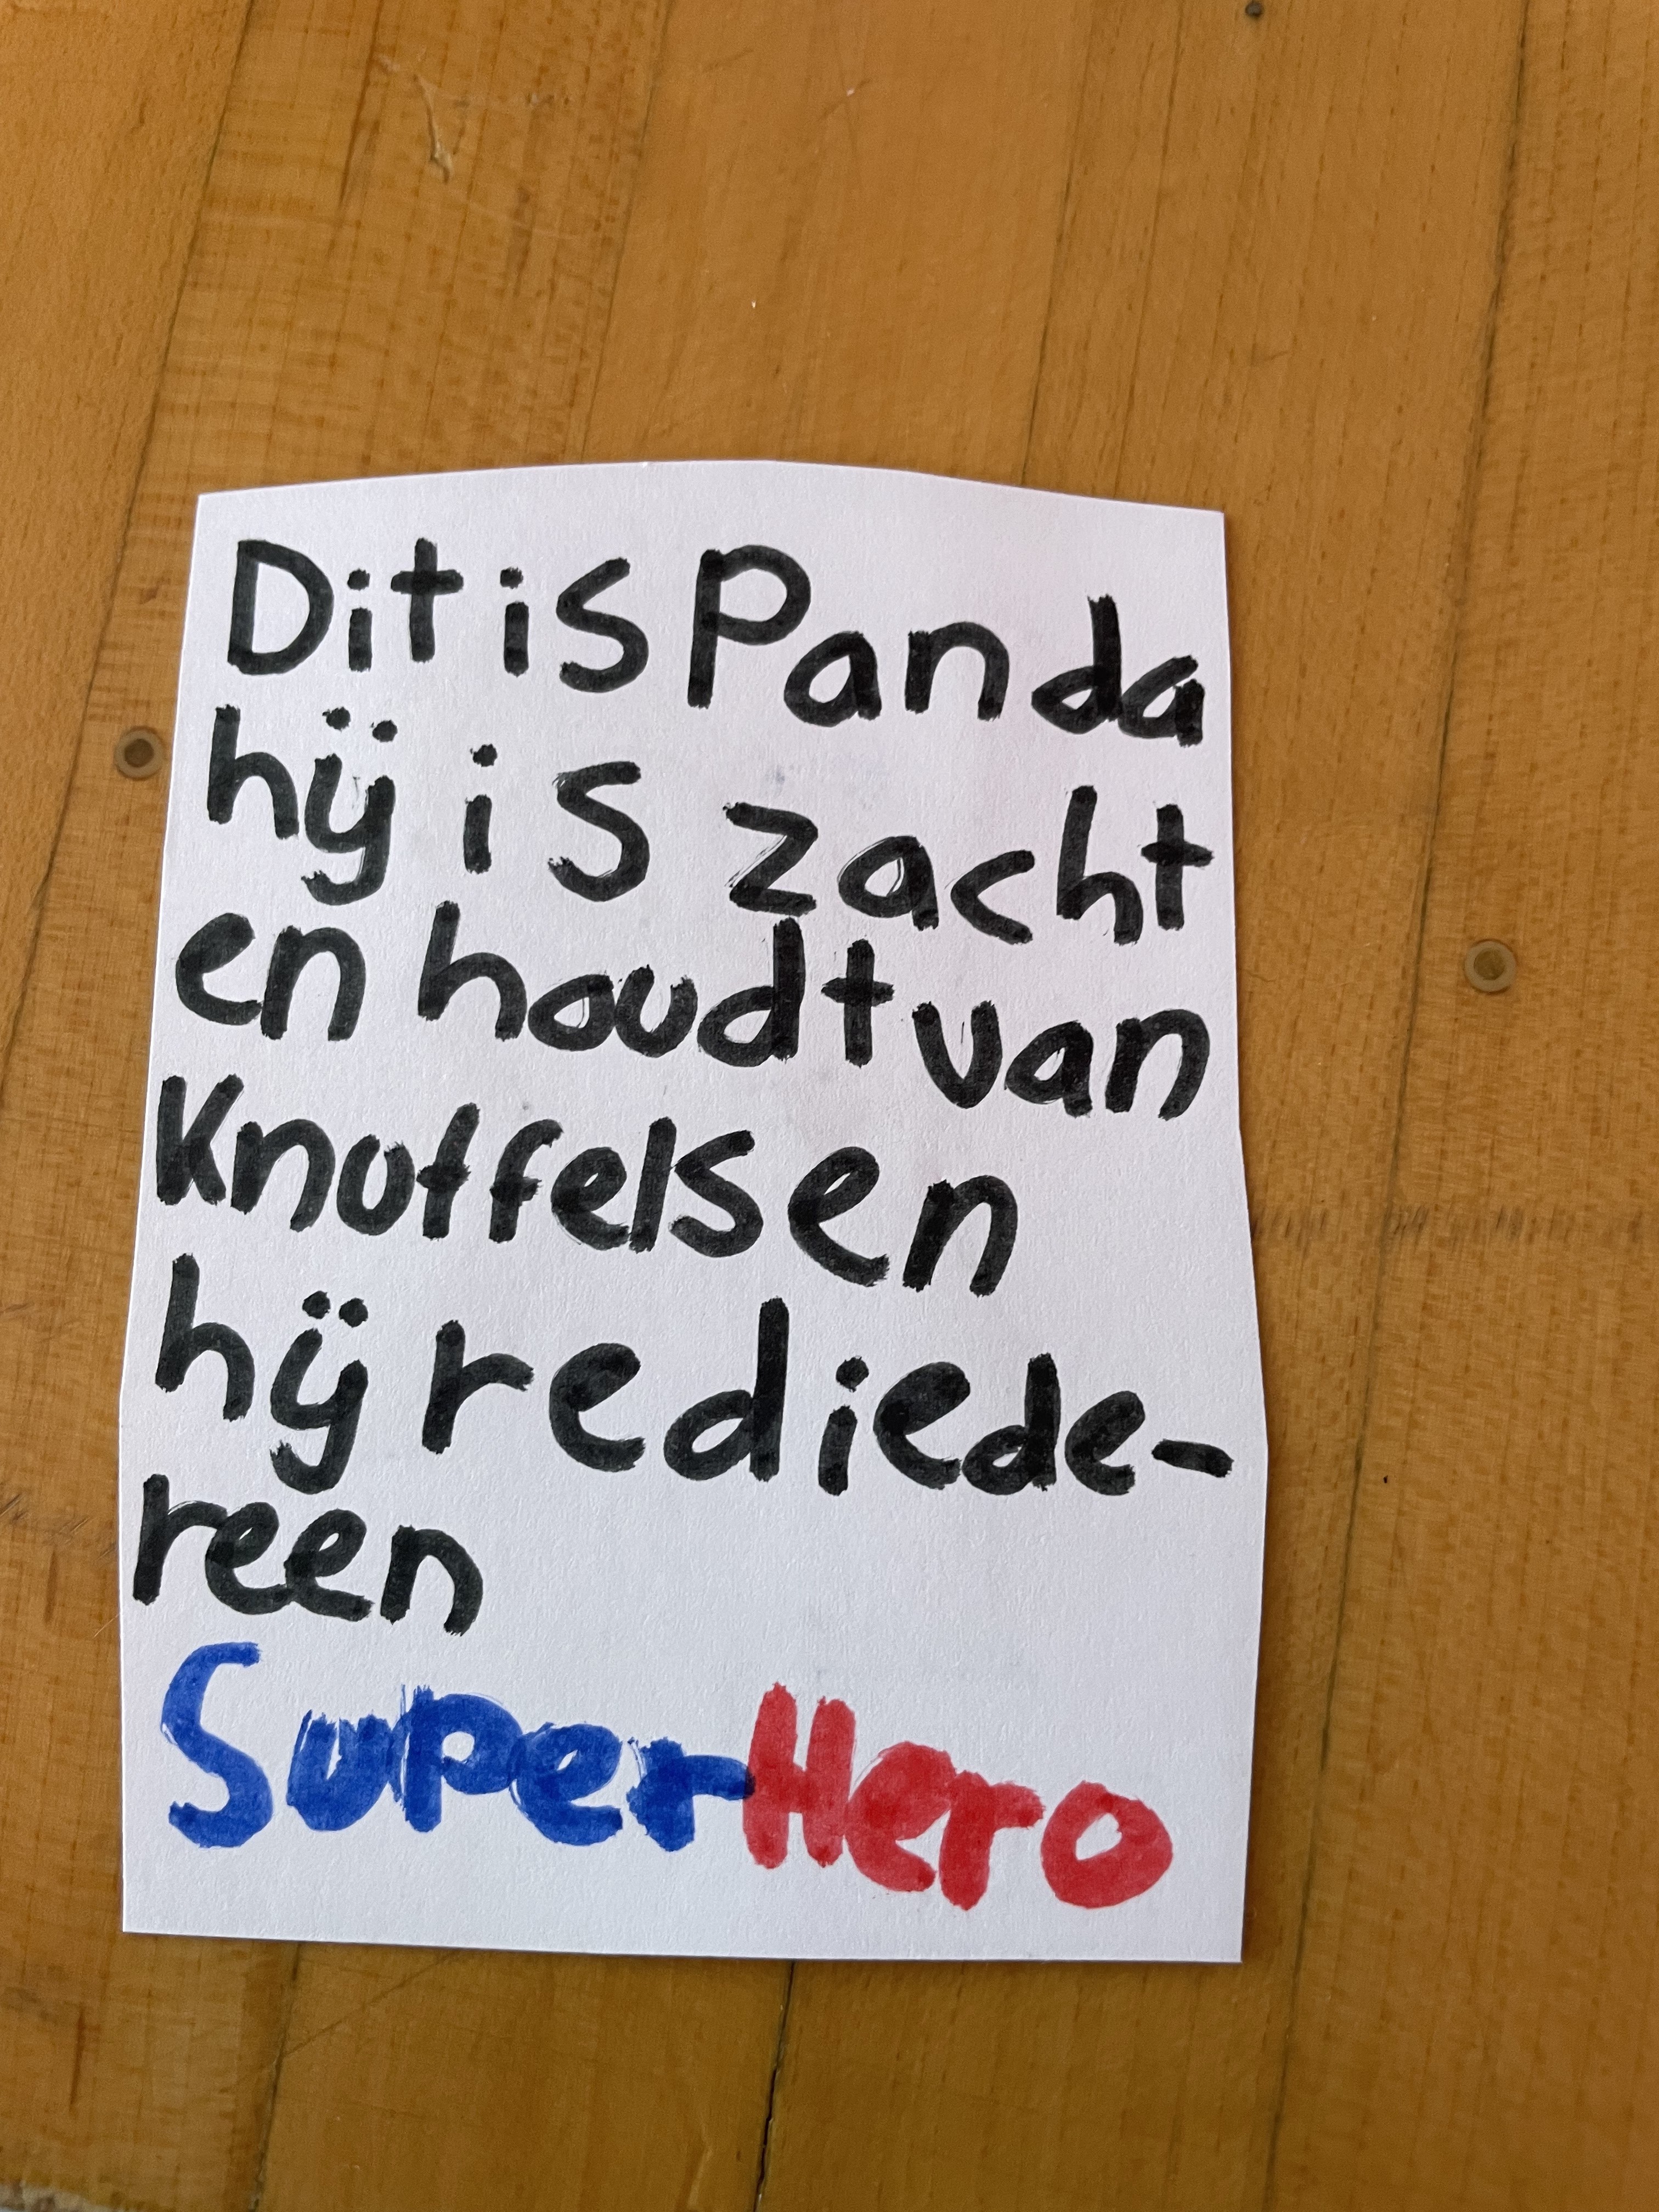 Dit is Panda
hij is zacht
en houdt van
Knuffels en
hij red iede-
reen
SuperHero